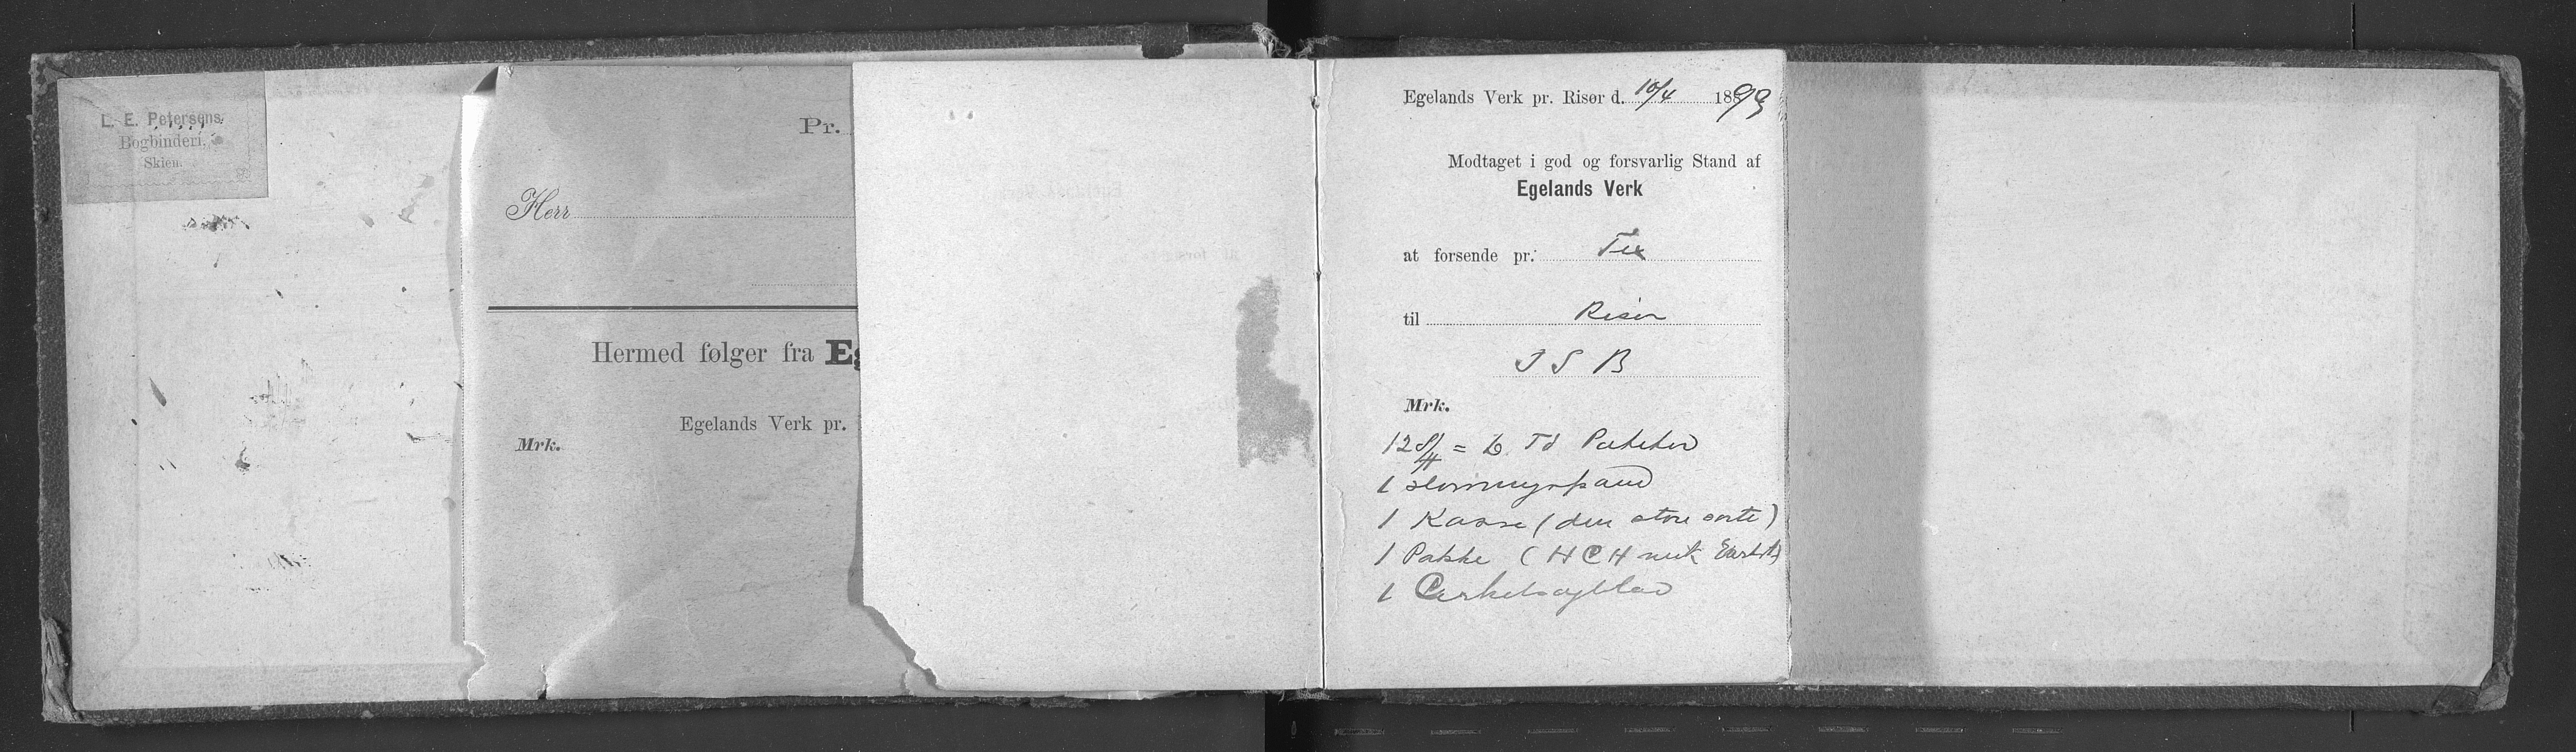 L. E. Petersens
Bogbinderi,
Skien.
Pr.
Herr
Hermed følger fra Eg
Egelands Verk pr.
Mrk.
Egelands Verk pr. Risør d. 10/4 1899
Modtaget i god og forsvarlig Stand af
Egelands Verk
at forsende pr.
til Risør
J S B
Mrk.
12 = Td
1
1 Kasse (den store sorte)
1 Pakke (H C H
1 Cirkelsagblad